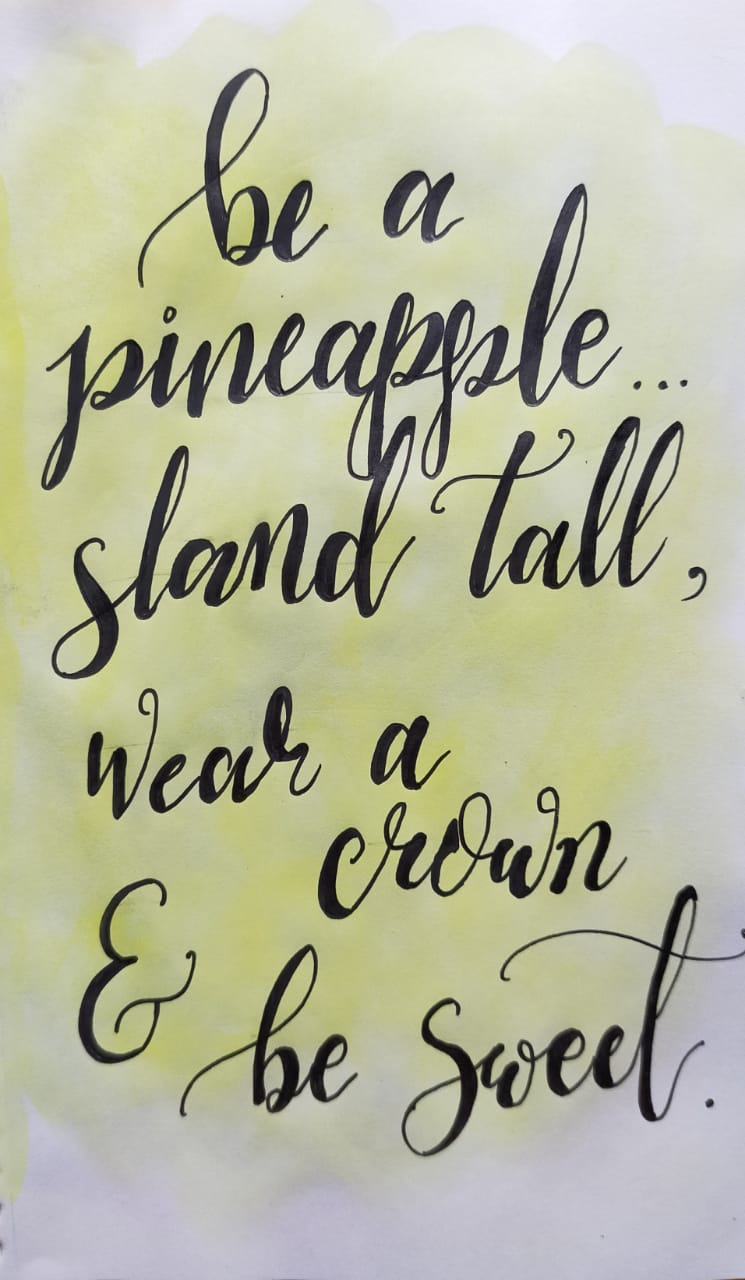 be a
pineapple...
stand tall,
wear a
crown
& be sweet.